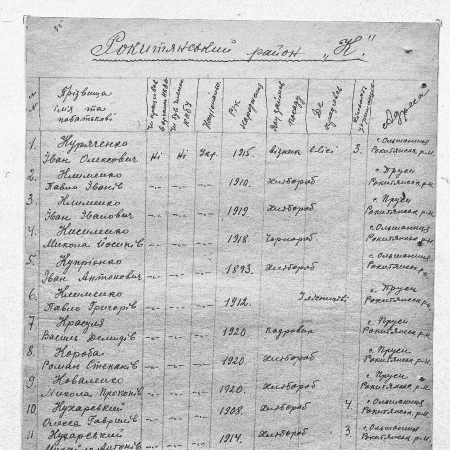 Рокитянський район „К."
N N Прізвище ім'я та побатькові Національн. Рік Народження Де працював Адреса
1. Куряченко Іван Олексович Ні Ні Укр. 1915. візник 3. с. Ольшаниця Рокитянськ р-н.
2. Клименко Павло Іванів 1910. Хлібороб с. Пруси Рокитянськ р-н.
3. Клименко Іван Іванович 1919 Хлібороб с. Пруси Рокитянськ р-н.
4. Кисиленко Микола Йосипів 1918 Чорнороб с. Ольшаниця Рокитянськ р-н.
5. Купріенко Іван Антонович 1893. Хлібороб с. Ольшаниця Рокитянськ
6. Клименко Павло Григорів 1912. с. Пруси Рокитянськ р-н.
7 Красуля Василь Демидів 1920 кадровик с. Пруси Рокитянськ р-н.
8. Короба Роман Степанів 1920. Хлібороб с. Пруси Рокитянськ р-н.
9 Коваленко Микола Прокопів 1920. Хлібороб с. Пруси Рокитянськ р-н.
10 Кухарський Олекса Гаврилів 1908. Хлібороб 4. с. Ольшаниця Рокитянськ р-н.
11 Кухарський Михайло Антонів 1914. Хлібороб 3. с. Ольшаниця Рокитянськ р-н.